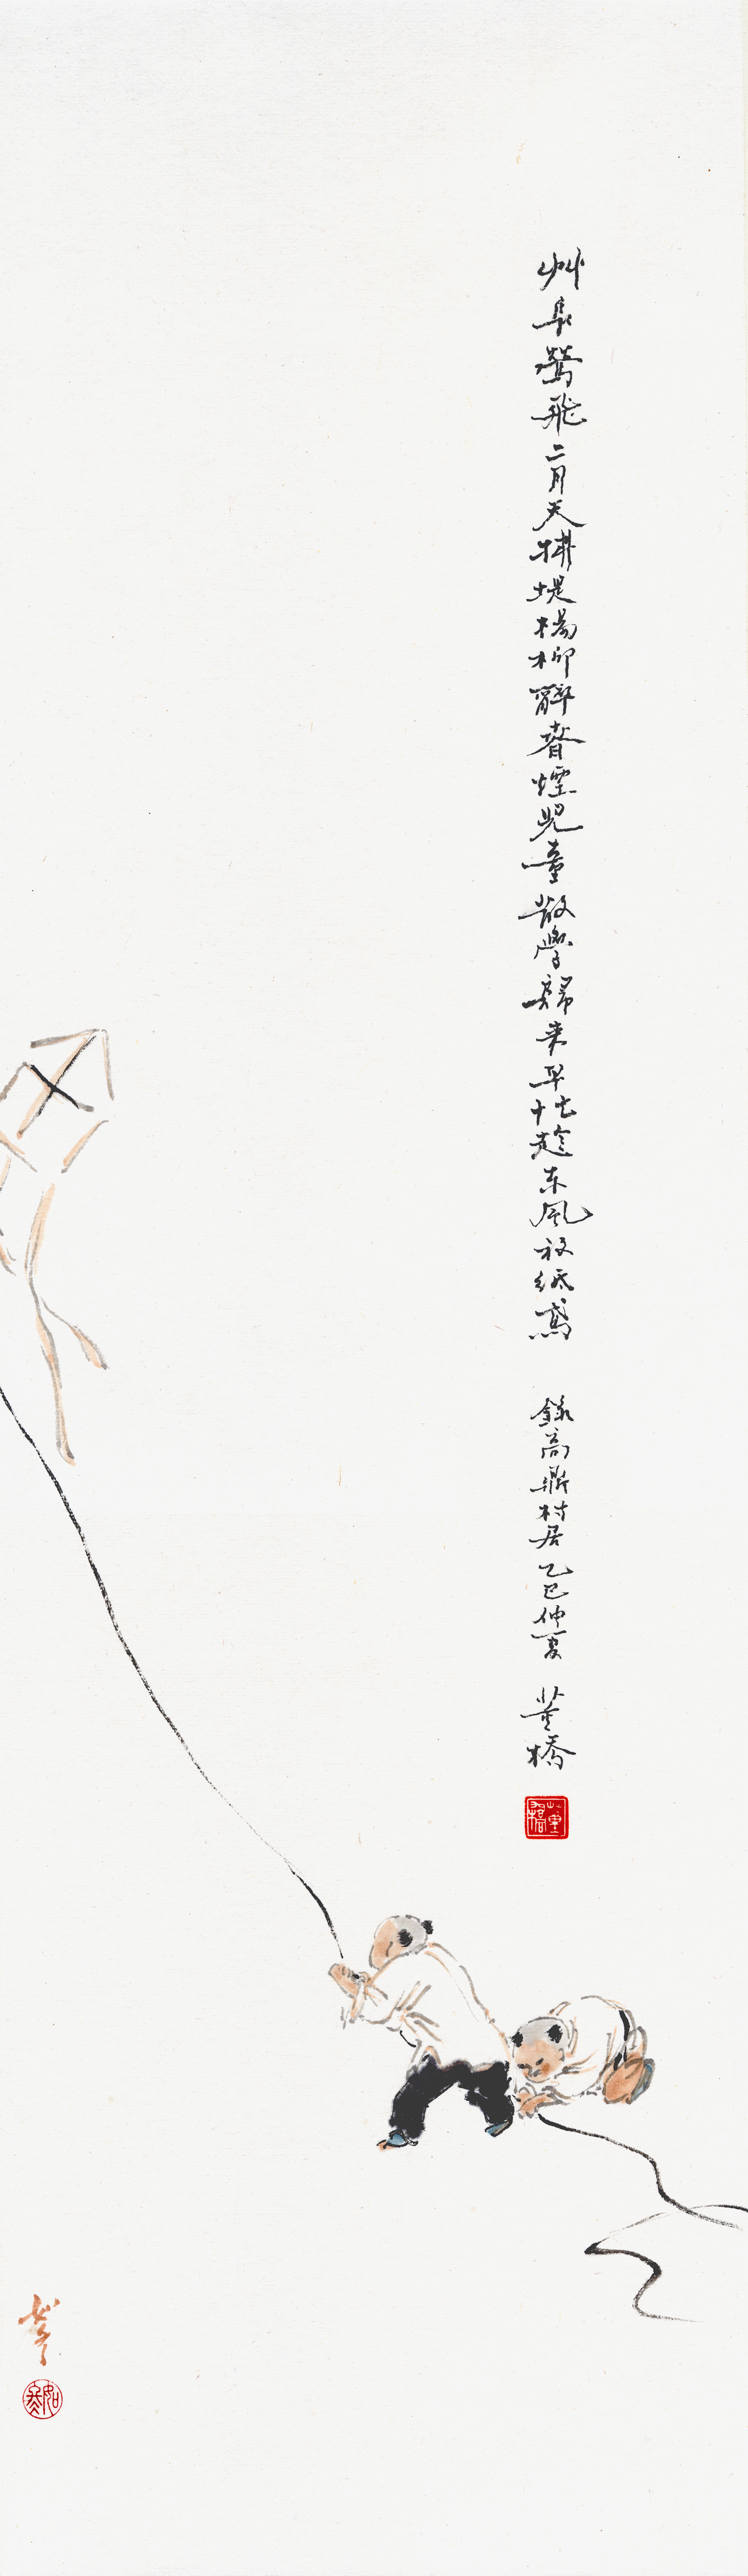 艸長鶯飛二月天拂堤楊柳醉春煙兒童散學歸来早忙趁东風放紙鳶 錄高鼎村居乙巳仲夏 董橋
董橋